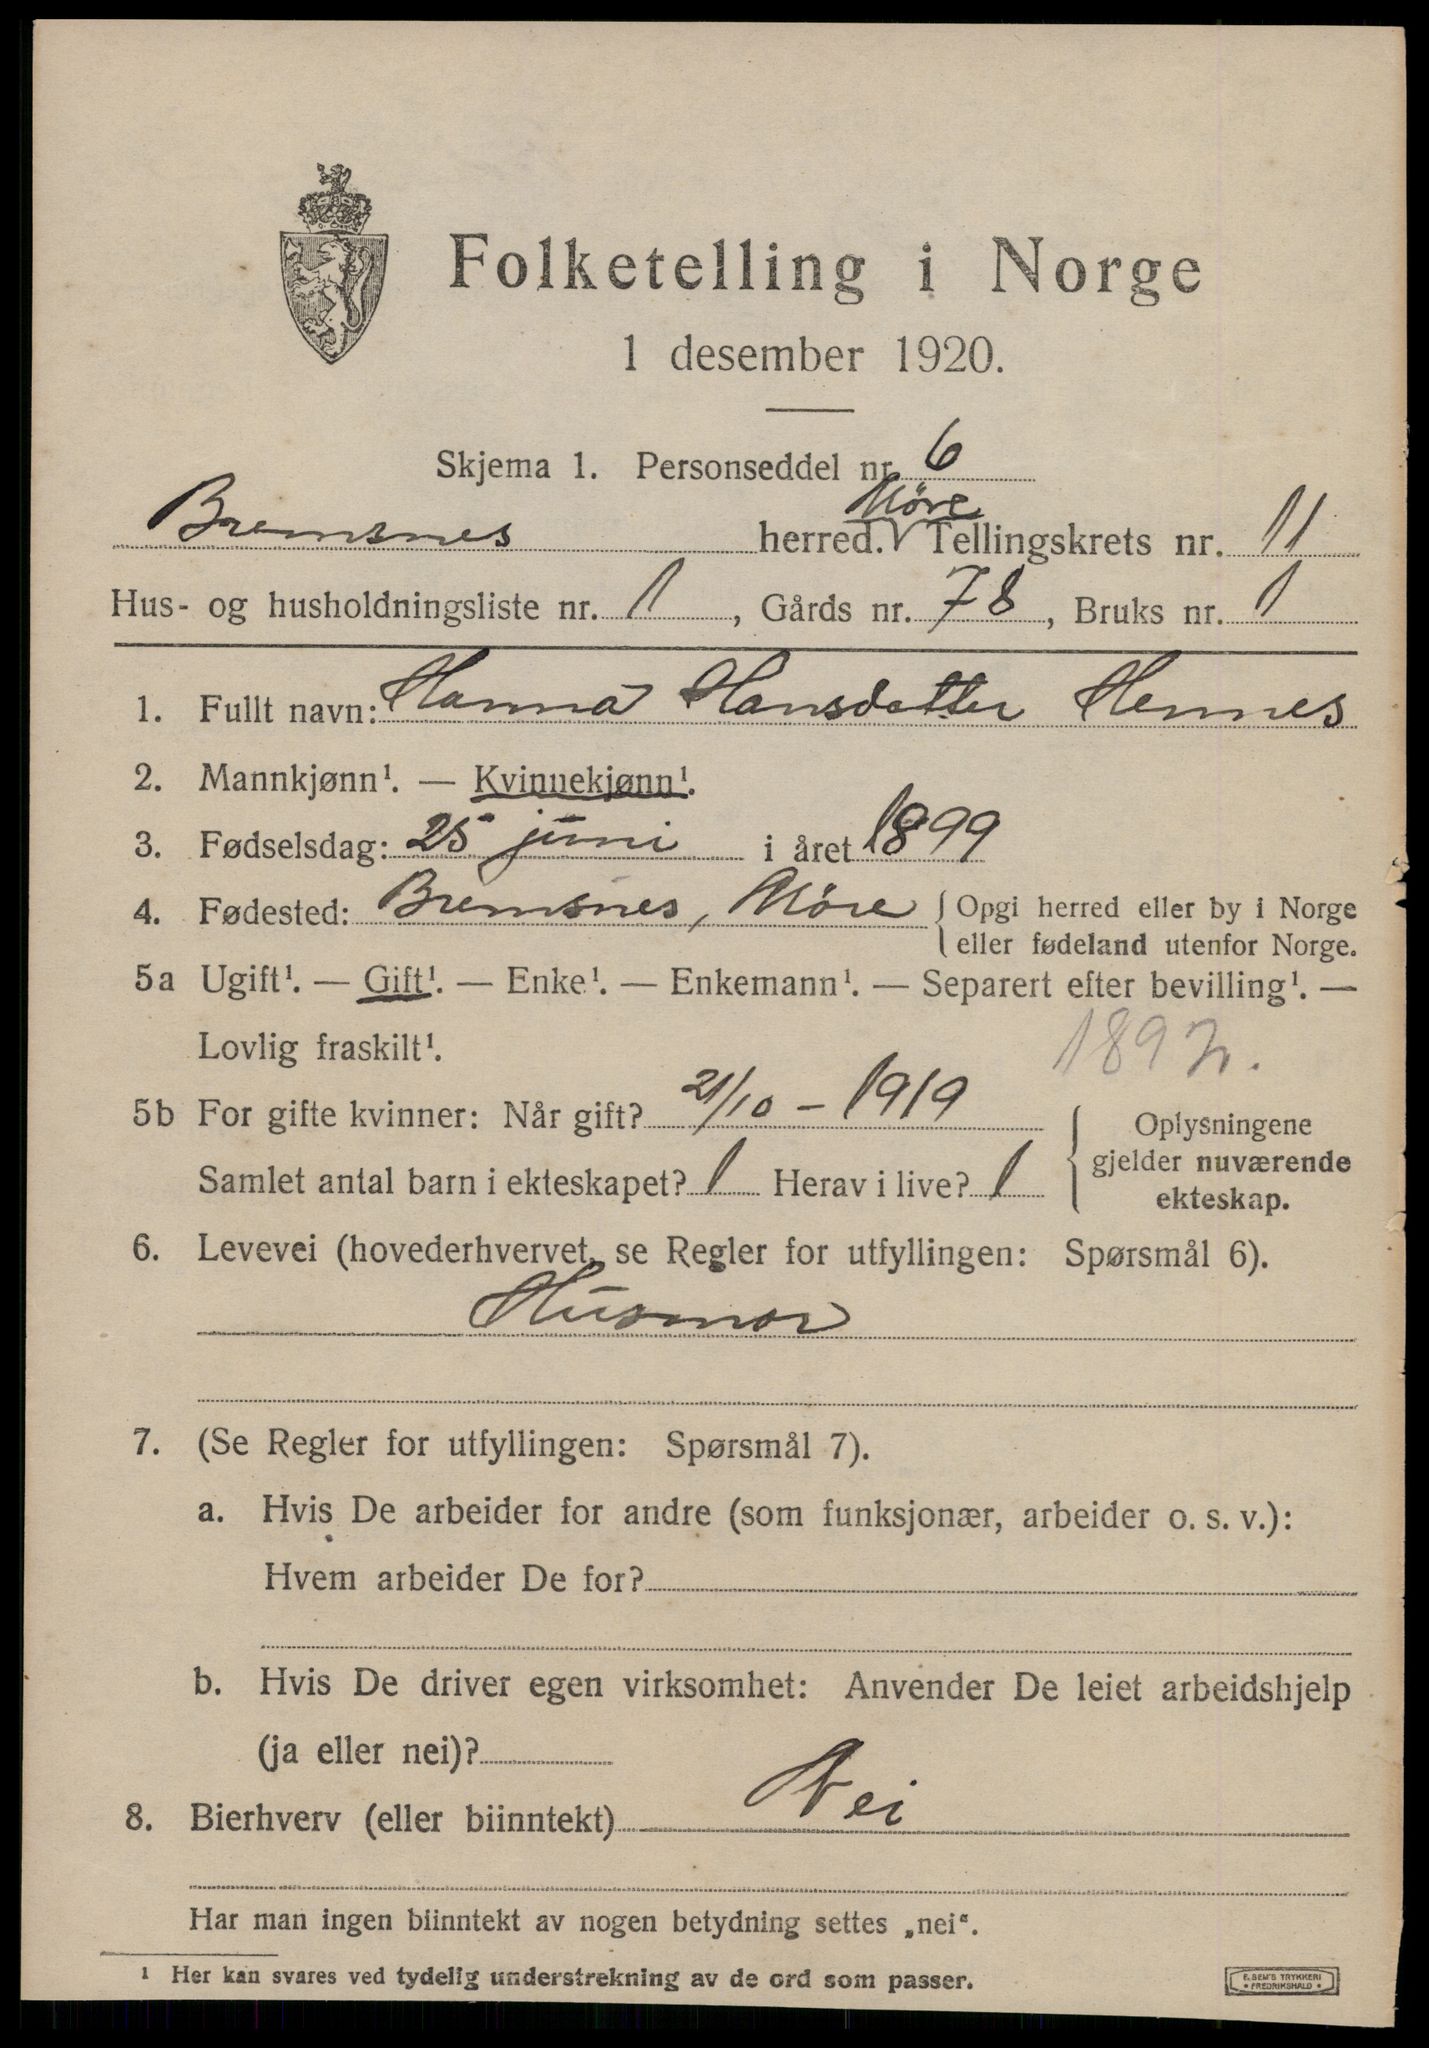 Folketelling i Norge
1 desember 1920.
Skjema 1. Personseddel nr. 6
Bremsnes herred. Møre Tellingskrets nr. 11
Hus- og husholdningsliste nr. 1, Gårds nr. 78, Bruks nr. 1
1. Fullt navn: Hanna Hansdatter Hennes
2. Mannkjønn¹. — Kvinnekjønn¹.
3. Fødselsdag: 25 juni i året 1899
4. Fødested: Bremsnes, Møre { Opgi herred eller by i Norge
eller fødeland utenfor Norge.
5a Ugift¹. — Gift¹. — Enke¹. — Enkemann¹. — Separert efter bevilling¹. —
Lovlig fraskilt¹.
5b For gifte kvinner: Når gift? 21/10 - 1919 { Oplysningene
gjelder nuværende
Samlet antal barn i ekteskapet? 1 Herav i live? 1
ekteskap.
6. Levevei (hovederhvervet, se Regler for utfyllingen: Spørsmål 6).
Husmor
7. (Se Regler for utfyllingen: Spørsmål 7).
a. Hvis De arbeider for andre (som funksjonær, arbeider o. s. v.):
Hvem arbeider De for?
b. Hvis De driver egen virksomhet: Anvender De leiet arbeidshjelp
(ja eller nei)?
8. Bierhverv (eller biinntekt) Nei
Har man ingen biinntekt av nogen betydning settes „nei“.
¹ Her kan svares ved tydelig understrekning av de ord som passer.
E. SEM'S TRYKKERI
FREDRIKSHALD